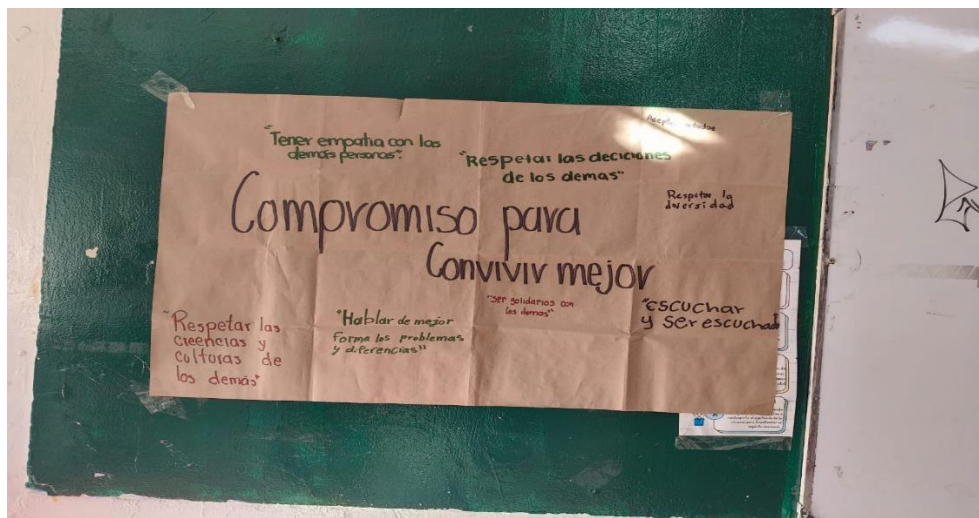 Aceptar a todos
"Tener empatia con las
demás personas".
"Respetar las deciciones
de los demas"
Respetar la
diversidad
Compromiso para
Convivir mejor
"Respetar las
creencias y
culturas de
los demás"
"Hablar de mejor
forma los problemas
y diferencias"
"Ser solidarios con
los demas"
"escuchar
y ser escuchado